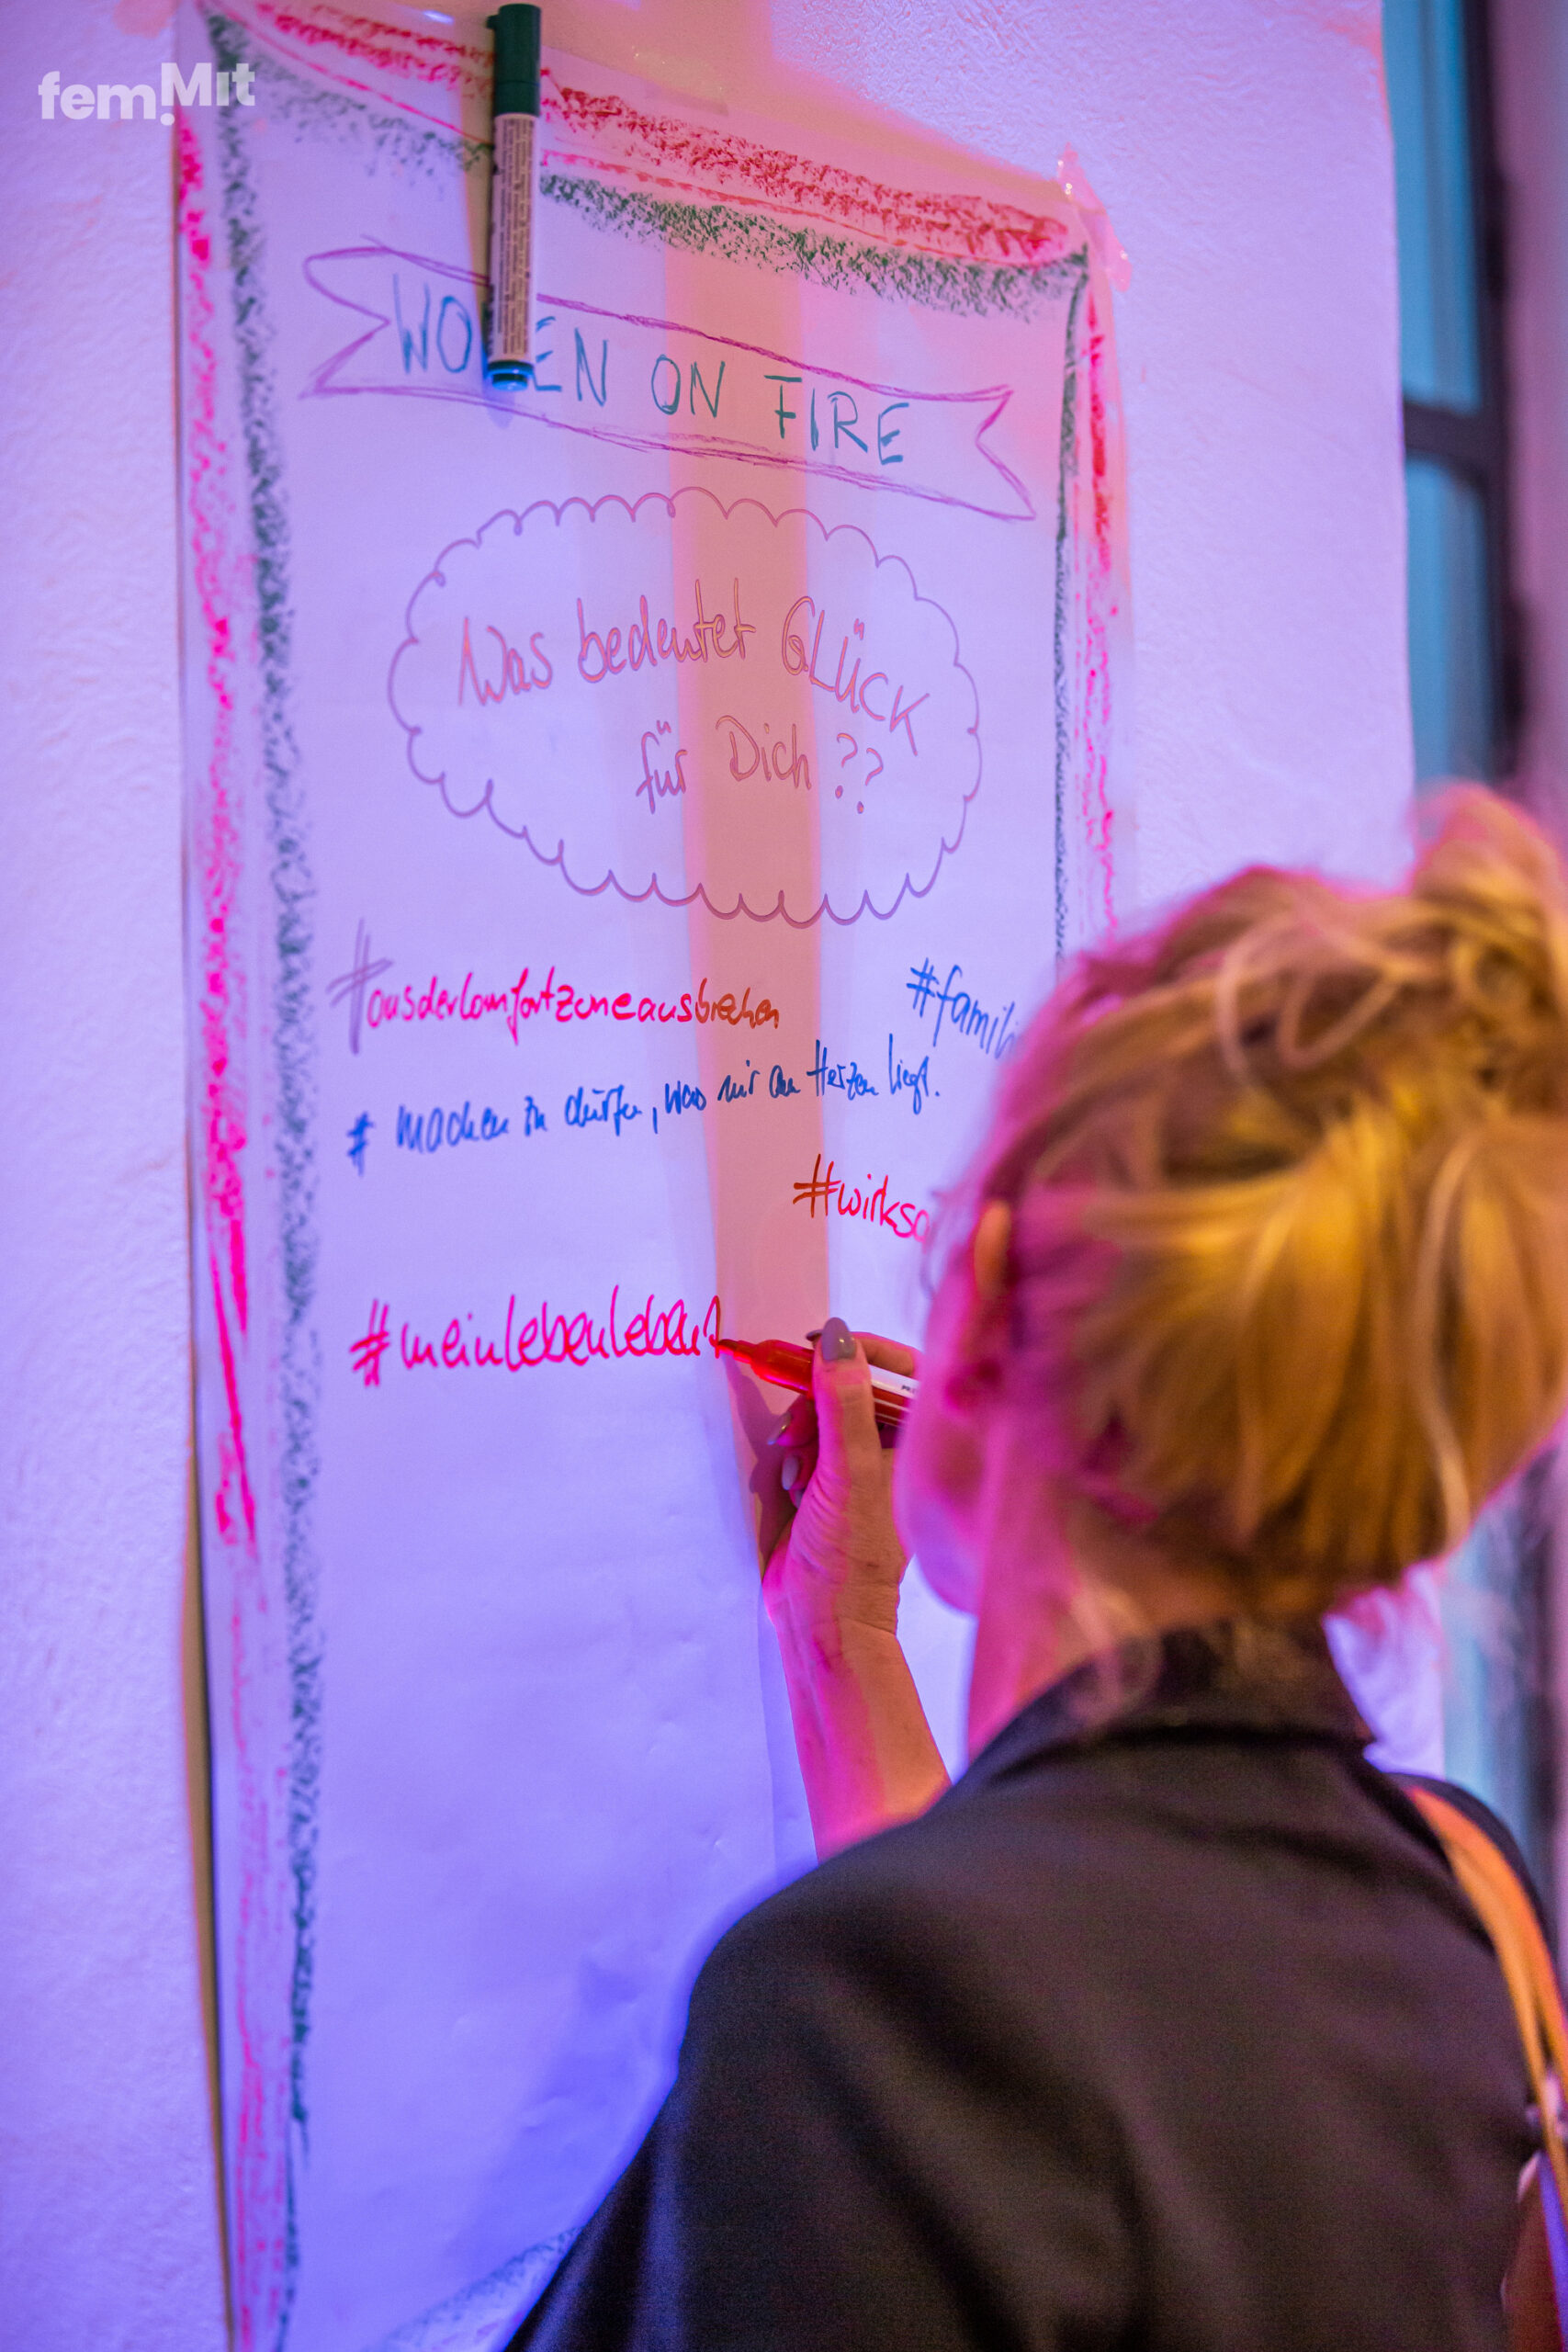 fem.Mit
WO EN ON FIRE
Was bedeutet GLÜCK
für Dich ??
#ausderkomfortzoneausbrechen
#famili
# machen zu dürfen, was mir am Herzen liegt.
#wirksa
#meinlebenleben